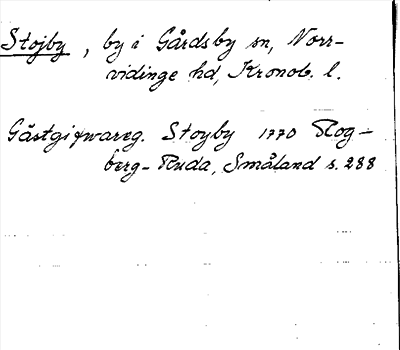 Stojby, by i Gårdsby sn, Norr-
vidinge hd, Kronob. l.
Gästgifwareg. Stoyby 1770 Rog-
berg-Ruda, Småland s. 288